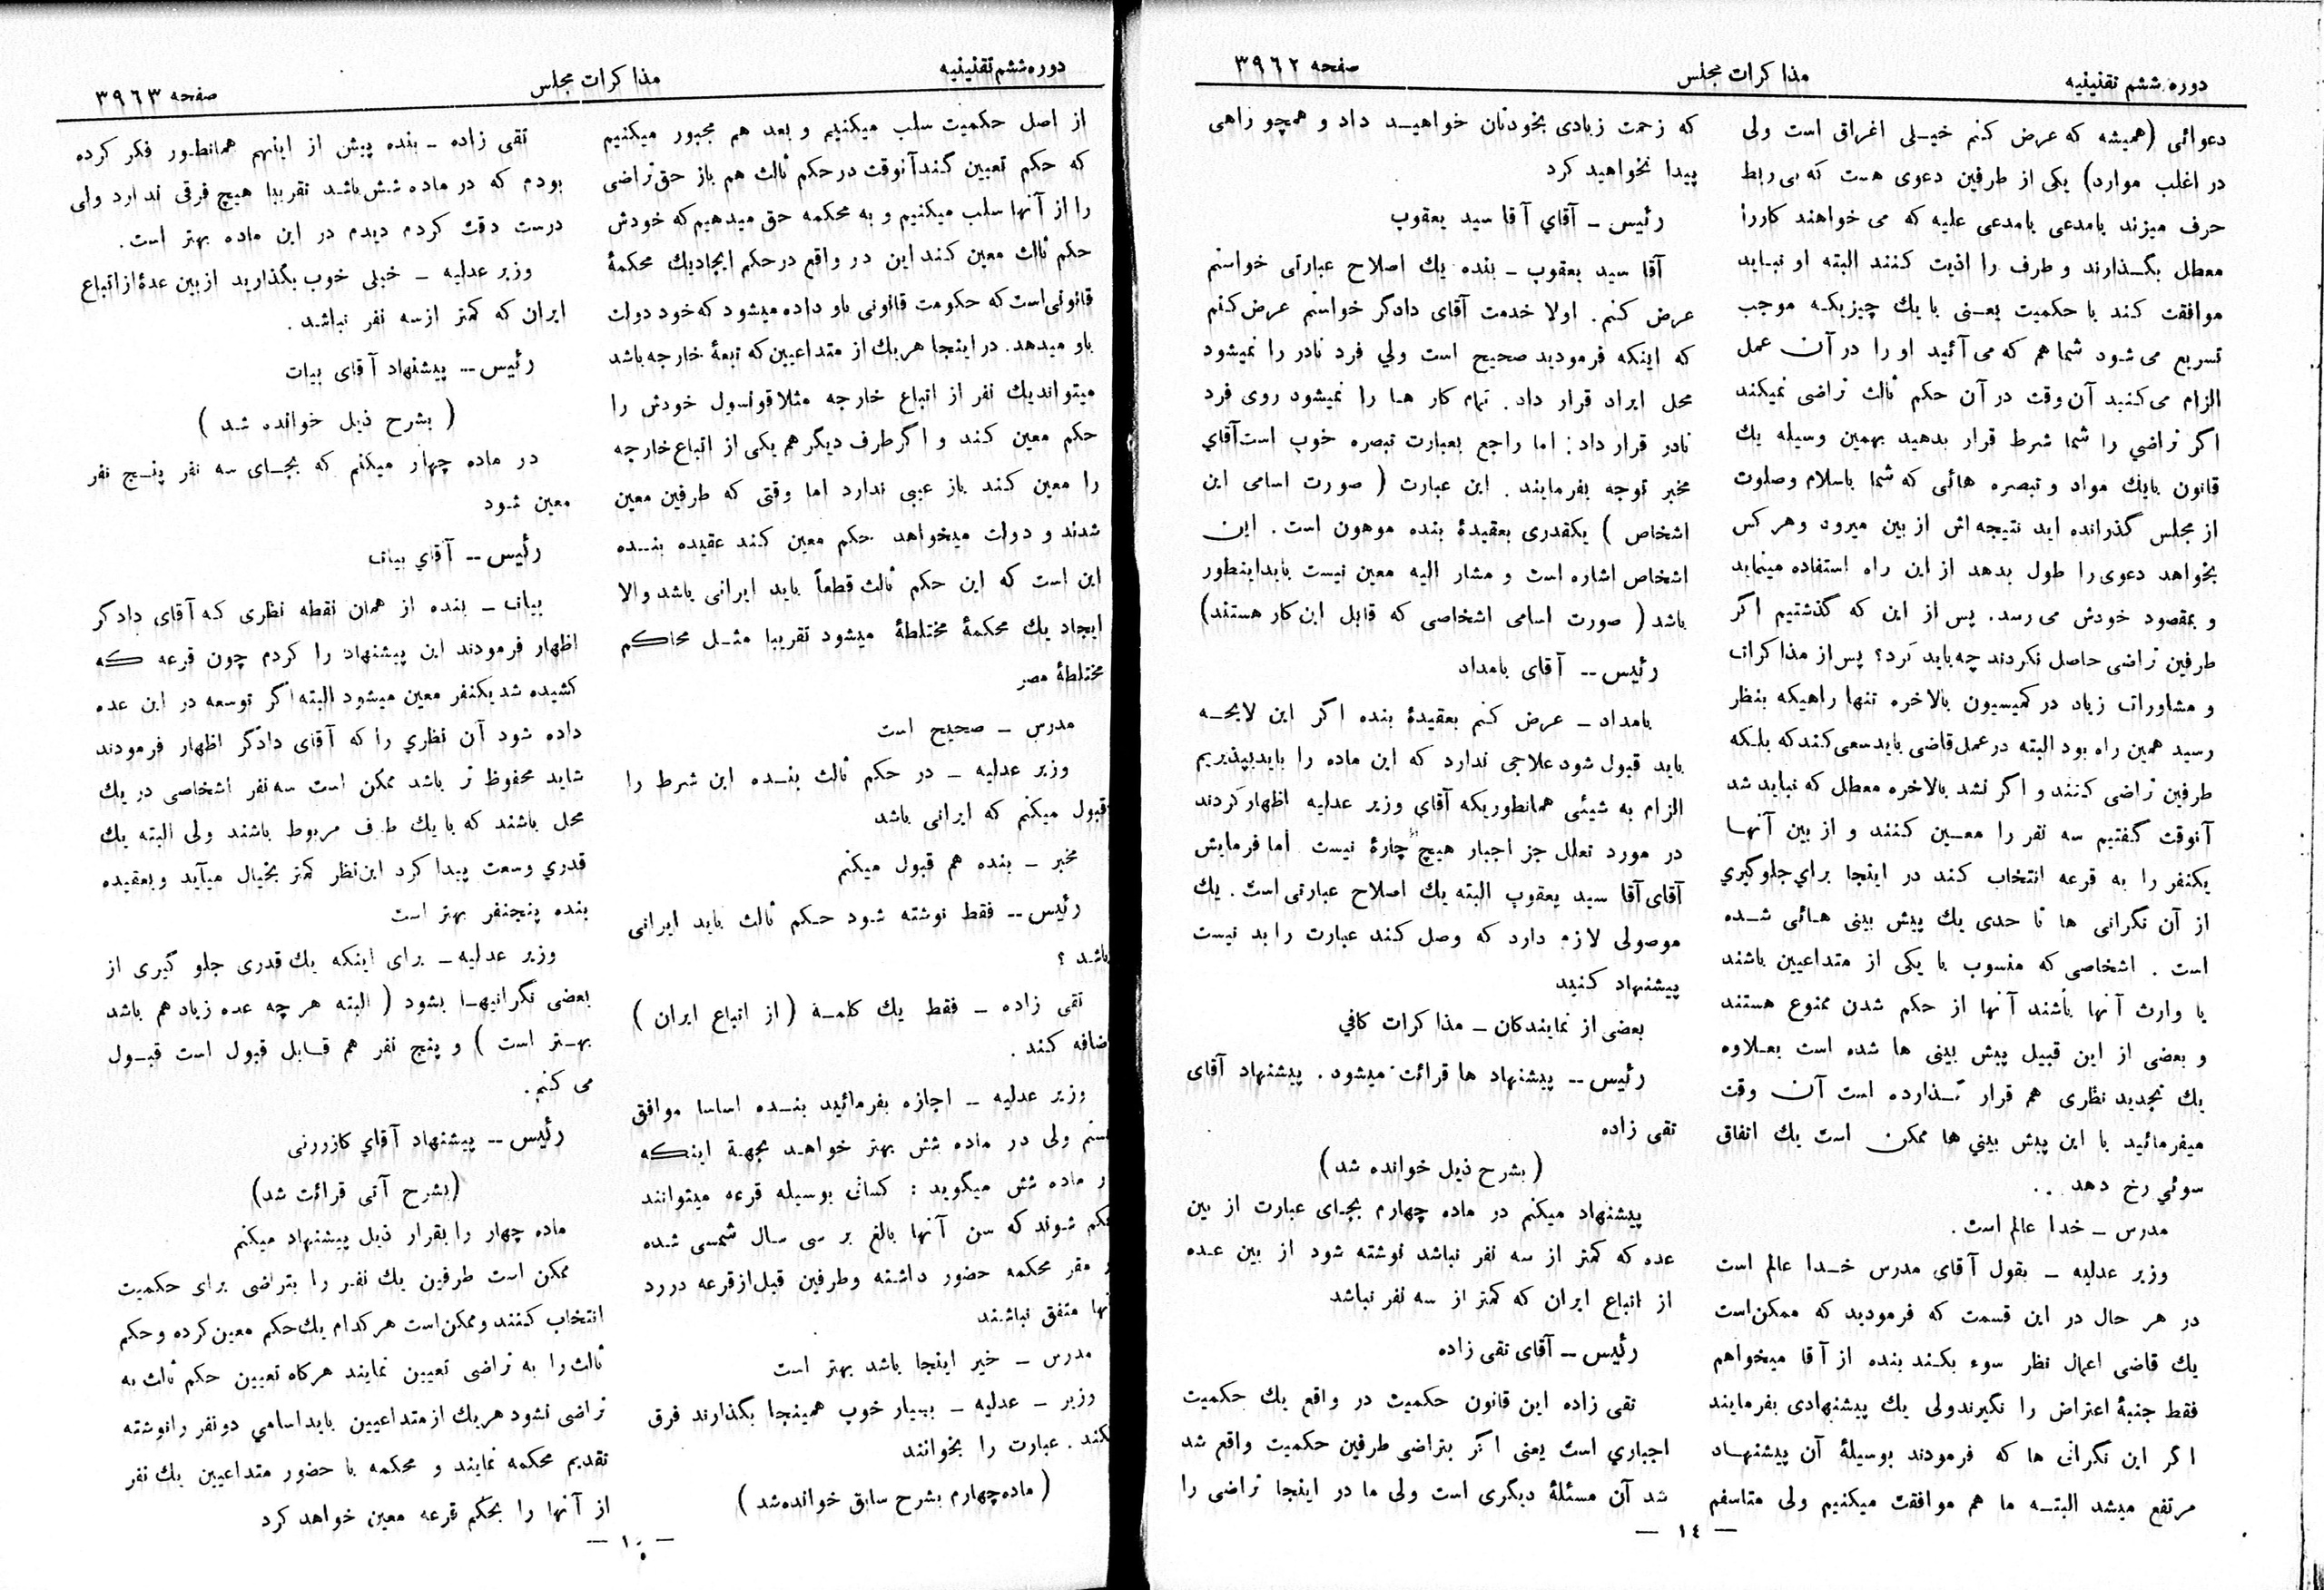 دوره ششم تقنینیه
مذاکرات مجلس
صفحه ۳۹۶۲
دعوائی (همیشه که عرض کنم خیـلی اغراق است ولی
در اغلب موارد) یکی از طرفین دعوی هست که بی ربط
حرف میزند یامدعی یامدعی علیه که می خواهند کاررا
معطل بگـذارند و طرف را اذیت کنند البته او نبـاید
موافقت کند با حکمیت یعـنی با یك چیزیکـه موجب
تسریع می شود شماهم که می آئید او را در آن عمل
الزام می کنید آن وقت در آن حکم ثالث تراضی نمیکند
اگر تراضي را شما شرط قرار بدهید بهمین وسیله یك
قانون بایك مواد و تبصره هائی که شما باسلام وصلوت
از مجلس گذرانده اید نتیجه اش از بین میرود وهر کس
بخواهد دعوی را طول بدهد از این راه استفاده مینماید
و بمقصود خودش می رسد. پس از این که گذشتیم اگر
طرفین تراضی حاصل نکردند چه باید کرد؟ پس از مذاکرات
و مشاورات زیاد در کمیسیون بالاخره تنها راهیکه بنظر
رسید همین راه بود البته در عمل قاضی باید سعی کند که بلـکه
طرفین تراضی کنند و اگر نشد بالاخره معطل که نباید شد
آنوقت گفتیم سه نفر را معـین کنند و از بین آنهـا
یکنفر را به قرعه انتخاب کند در اینجا براي جلوگیري
از آن نگرانی ها تا حدی یك پیش بینی هـائی شـده
است . اشخاصی که منسوب با یکی از متداعیین باشند
یا وارث آنها باشند آنها از حکم شدن ممنوع هستند
و بعضی از این قبیل پیش بینی ها شده است بعـلاوه
یك تجدید نظری هم قرار گـذارده است آن وقت
میفرمائید با این پیش بیني ها ممکن است یك اتفاق
سوئي رخ دهد ..
مدرس ـ خدا عالم است .
وزیر عدلیه ـ بقول آقای مدرس خـدا عالم است
در هر حال در این قسمت که فرمودید که ممکن است
یك قاضی اعمال نظر سوء بکـند بنده از آقا میخواهم
فقط جنبهٔ اعتراض را نگیرند ولی یك پیشنهادی بفرمایند
اگر این نگرانی ها که فرمودند بوسیلهٔ آن پیشنهـاد
مرتفع میشد البتـه ما هم موافقت میکنیم ولی متاسفم
که زحمت زیادی بخودتان خواهیـد داد و همچو راهی
پیدا نخواهید کرد
رئیس ـ آقاي آقا سید یعقوب
آقا سید یعقوب ـ بنده یك اصلاح عبارتی خواستم
عرض کنم . اولا خدمت آقای دادگر خواستم عرض کنم
که اینکه فرمودید صحیح است ولي فرد نادر را نمیشود
محل ایراد قرار داد . تمام کار هـا را نمیشود روی فرد
نادر قرار داد : اما راجع بعبارت تبصره خوب است آقاي
مخبر توجه بفرمایند . این عبارت ( صورت اسامی این
اشخاص ) یکقدری بعقیدهٔ بنده موهون است . این
اشخاص اشاره است و مشار الیه معین نیست باید اینطور
باشد ( صورت اسامی اشخاصی که قابل این کار هستند)
رئیس -- آقای بامداد
بامداد ـ عرض کنم بعقیدهٔ بنده اگر این لایحـه
باید قبول شود علاجی ندارد که این ماده را بایدبپذیریم
الزام به شیئی همانطوریکه آقاي وزیر عدلیه اظهار کردند
در مورد تعلل جز اجبار هیچ چارهٔ نیست اما فرمایش
آقای آقا سید یعقوب البته یك اصلاح عبارتی است . یك
موصولی لازم دارد که وصل کند عبارت را بد نیست
پیشنهاد کنید
بعضی از نمایندگان ـ مذاکرات کافي
رئیس -- پیشنهاد ها قرائت میشود . پیشنهاد آقای
تقی زاده
( بشرح ذیل خوانده شد )
پیشنهاد میکنم در ماده چهارم بجـای عبارت از بین
عده که کمتر از سه نفر نباشد نوشته شود از بین عـده
از اتباع ایران که کمتر از سه نفر نباشد
رئیس ـ آقای تقی زاده
تقی زاده این قانون حکمیت در واقع یك حکمیت
اجباري است یعنی اگر بتراضی طرفین حکمیت واقع شد
شد آن مسئلهٔ دیگری است ولی ما در اینجا تراضی را
— ١٤ —
دوره ششم تقنینیه
مذاکرات مجلس
صفحه ۳۹٦۳
از اصل حکمیت سلب میکنیم و بعد هم مجبور میکنیم
که حکم تعیین کند آنوقت در حکم ثالث هم باز حق تراضی
را از آنها سلب میکنیم و به محکمه حق میدهیم که خودش
حکم ثالث معین کند این در واقع در حکم ایجادیك محکمهٔ
قانونی است که حکومت قانونی باو داده میشود که خود دولت
باو میدهد. در اینجا هریك از متداعیین که تبعهٔ خارجه باشد
میتواندیك نفر از اتباع خارجه مثلا قونسول خودش را
حکم معین کند و اگر طرف دیگر هم یکی از اتباع خارجه
را معین کند باز عیبی ندارد اما وقتی که طرفین معین
شدند و دولت میخواهد حکم معین کند عقیده بنـده
این است که این حکم ثالث قطعاً باید ایرانی باشد والا
ایجاد یك محکمهٔ مختلطهٔ میشود تقریبا مثـل محاکم
مختلطهٔ مصر
مدرس ـ صحیح است
وزیر عدلیه ـ در حکم ثالث بنـده این شرط را
قبول میکنم که ایرانی باشد
مخبر ـ بنده هم قبول میکنم
رئیس -- فقط نوشته شود حـکم ثالث باید ایرانی
باشد ؟
تقی زاده ـ فقط یك کلمـهٔ (از اتباع ایران )
ضافه کند .
وزیر عدلیه ـ اجازه بفرمائید بنـده اساسا موافق
ستم ولی در ماده شش بهتر خواهـد بجهـة اینـکه
ر ماده شش میگوید : کسانی بوسیله قرعه میتوانند
حکم شوند که سن آنها بالغ بر سی سال شمسی شده
ر مقر محکمه حضور داشته وطرفین قبل از قرعه در رد
نها متفق نباشند
مدرس ـ خیر اینجا باشد بهتر است
وزیر ـ عدلیه ـ بسیار خوب همینجا بگذارند فرق
یکند . عبارت را بخوانند
( ماده چهارم بشرح سابق خوانده شد )
تقی زاده ـ بنده پیش از اینهم همانطـور فکر کرده
بودم که در ماده شش باشد تقریبا هیچ فرقی ندارد ولی
درست دقت کردم دیدم در این ماده بهتر است .
وزیر عدلیه ـ خیلی خوب بگذارید از بین عدهٔ از اتباع
ایران که کمتر از سه نفر نباشد .
رئیس -- پیشنهاد آقای بیات
( بشرح ذیل خوانده شد )
در ماده چهار میکنم که بجـای سه نفر پنـج نفر
معین شود
رئیس -- آقاي بیات
بیات ـ بنده از همان نقطه نظری که آقای دادگر
اظهار فرمودند این پیشنهاد را کردم چون قرعه که
کشیده شد یکنفر معین میشود البته اگر توسعه در این عده
داده شود آن نظري را که آقای دادگر اظهار فرمودند
شاید محفوظ تر باشد ممکن است سه نفر اشخاصی در یك
محل باشند که با یك طرف مربوط باشند ولی البته یك
قدري وسعت پیدا کرد این نظر کمتر بخیال میآید وبعقیده
بنده پنجنفر بهتر است
وزیر عدلیه ـ برای اینکه یك قدری جلو گیری از
بعضی نگرانیهـا بشود ( البته هر چه عده زیاد هم باشد
بهـتر است ) و پنج نفر هم قـابل قبول است قبـول
می کنم .
رئیس -- پیشنهاد آقاي کازرونی
(بشرح آتی قرائت شد)
ماده چهار را بقرار ذیل پیشنهاد میکنم
ممکن است طرفین یك نفـر را بتراضی برای حکمیت
انتخاب کنند وممکن است هر کدام یك حکم معین کرده وحکم
ثالث را به تراضی تعیین نمایند هرگاه تعیین حکم ثالث به
تراضی نشود هریك از متداعیین باید اسامي دو نفر را نوشته
تقدیم محکمه نمایند و محکمه با حضور متداعیین یك نفر
از آنها را بحکم قرعه معین خواهد کرد